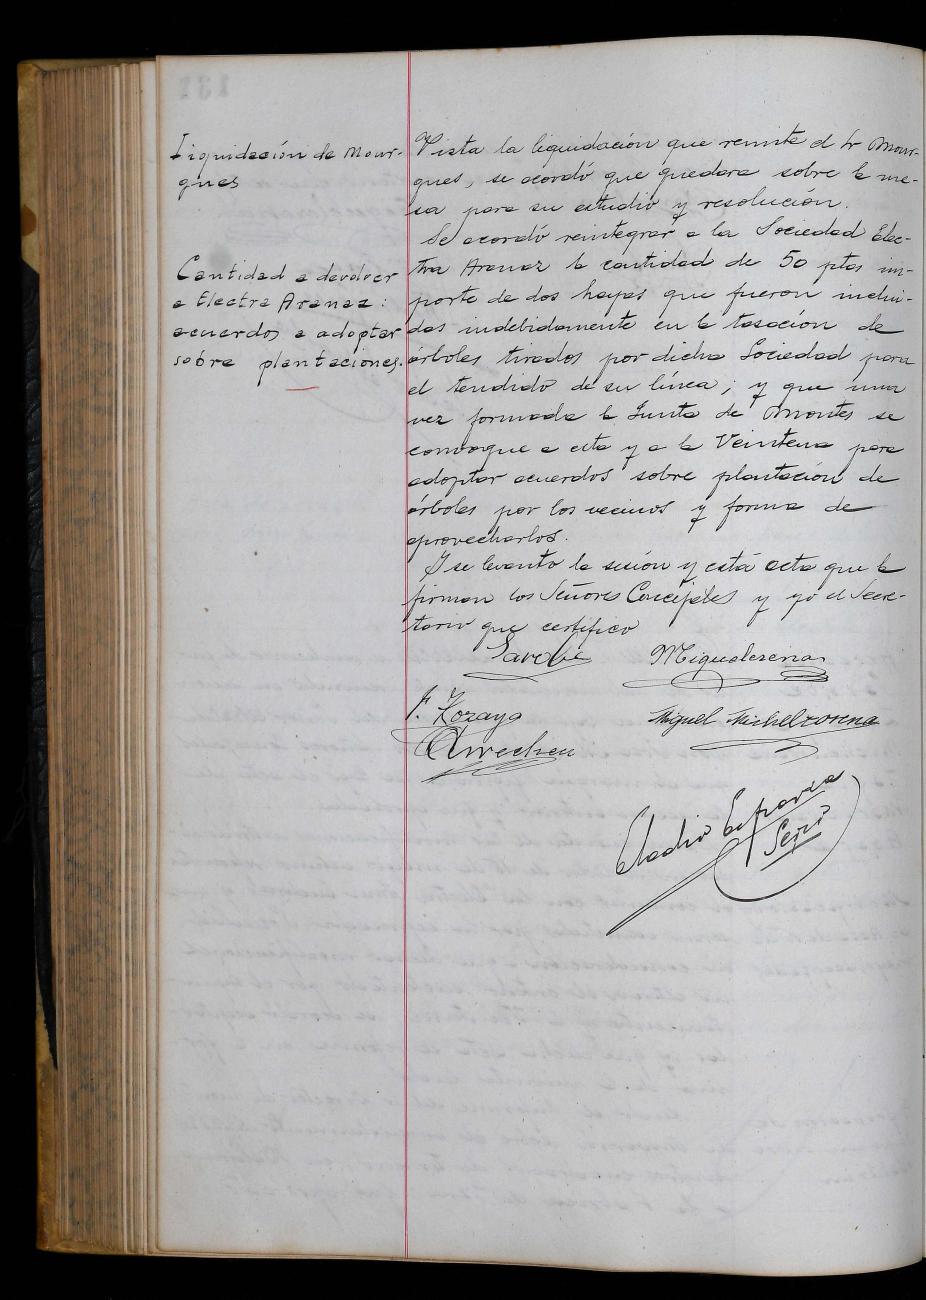 Liquidación de Mour-
gues
Vista la liquidación que remite el Sr Mour-
gues, se acordó que quedara sobre la me-
sa para su estudio y resolución.
Cantidad a devolver
a Electra Aranaz:
acuerdos a adoptar
sobre plantaciones.
Se acordó reintegrar a la Sociedad Elec-
tra Aranaz la cantidad de 50 ptas im-
porte de dos hayas que fueron inclui-
das indebidamente en la tasación de
árboles tirados por dicha Sociedad para
el tendido de su línea; y que una
vez formada la Junta de Montes se
convoque a esta y a la Veintena para
adoptar acuerdos sobre plantación de
árboles por los vecinos y forma de
aprovecharlos.
Y se levantó la sesión y está acta que la
firman los Señores Concejales y yo el Secre-
tario que certifico
Sarobe Miguelerena
F. Zozaya Miguel Michelzorena
Eladio Esparza
Serio
131